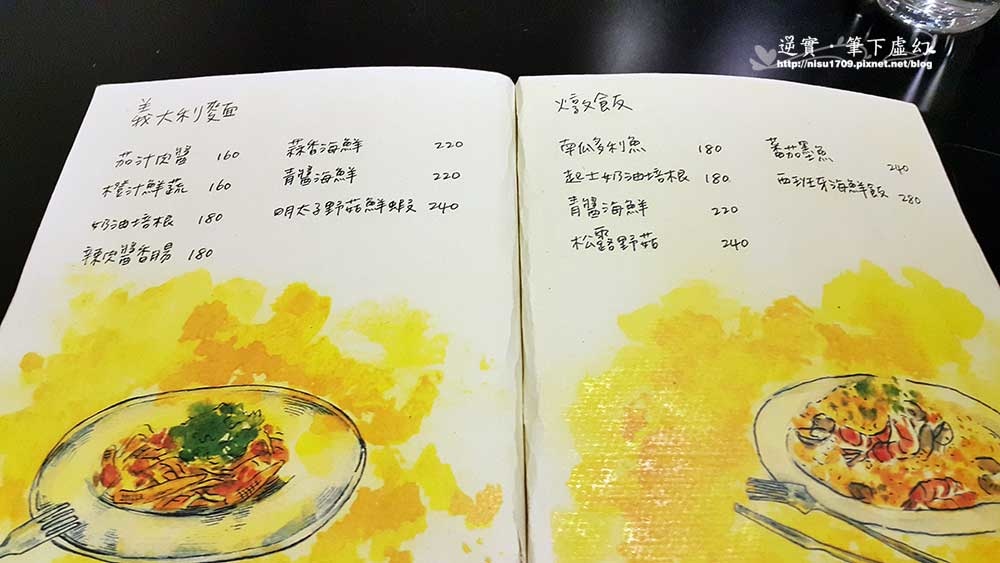 逆實·筆下虛幻
http://nisu1709.pixnet.net/blog
義大利麵
茄汁肉醬 160
橙汁鮮蔬 160
奶油培根 180
辣肉醬香腸 180
蒜香海鮮 220
青醬海鮮 220
明太子野菇鮮蝦 240
燉飯
南瓜多利魚 180
起士奶油培根 180
青醬海鮮 220
松露野菇 240
蕃茄墨魚 240
西班牙海鮮飯 280